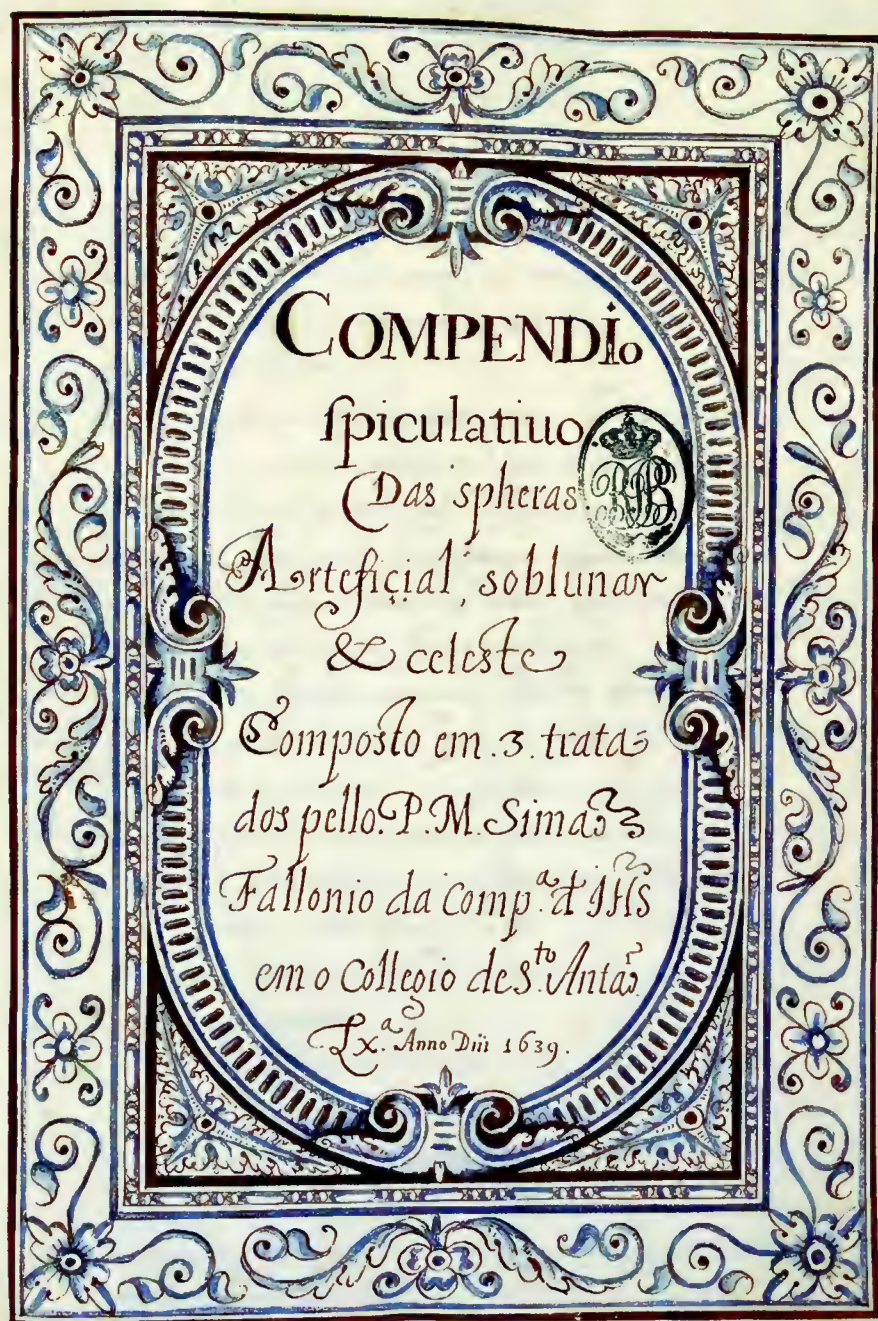 COMPENDIo
ſpiculatiuo
Das spheras
Arteficial, soblunar
& celeste
Composto em .3. trata=
dos pello. P. M. Simaõ
Fallonio da Comp.ª d' IHS
em o Collegio de S.to Antaõ.
Lx.ª Anno Dñi 1639.